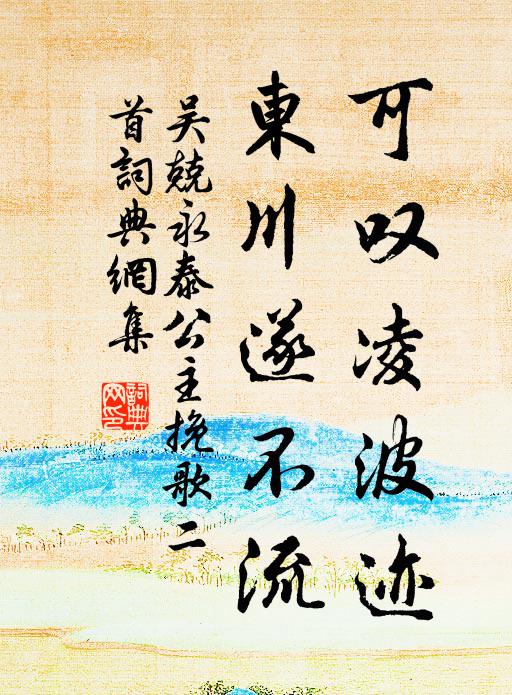 可叹凌波迹
東川遂不流
吴兢永泰公主挽歌二
首詞典網集
詞典
网印